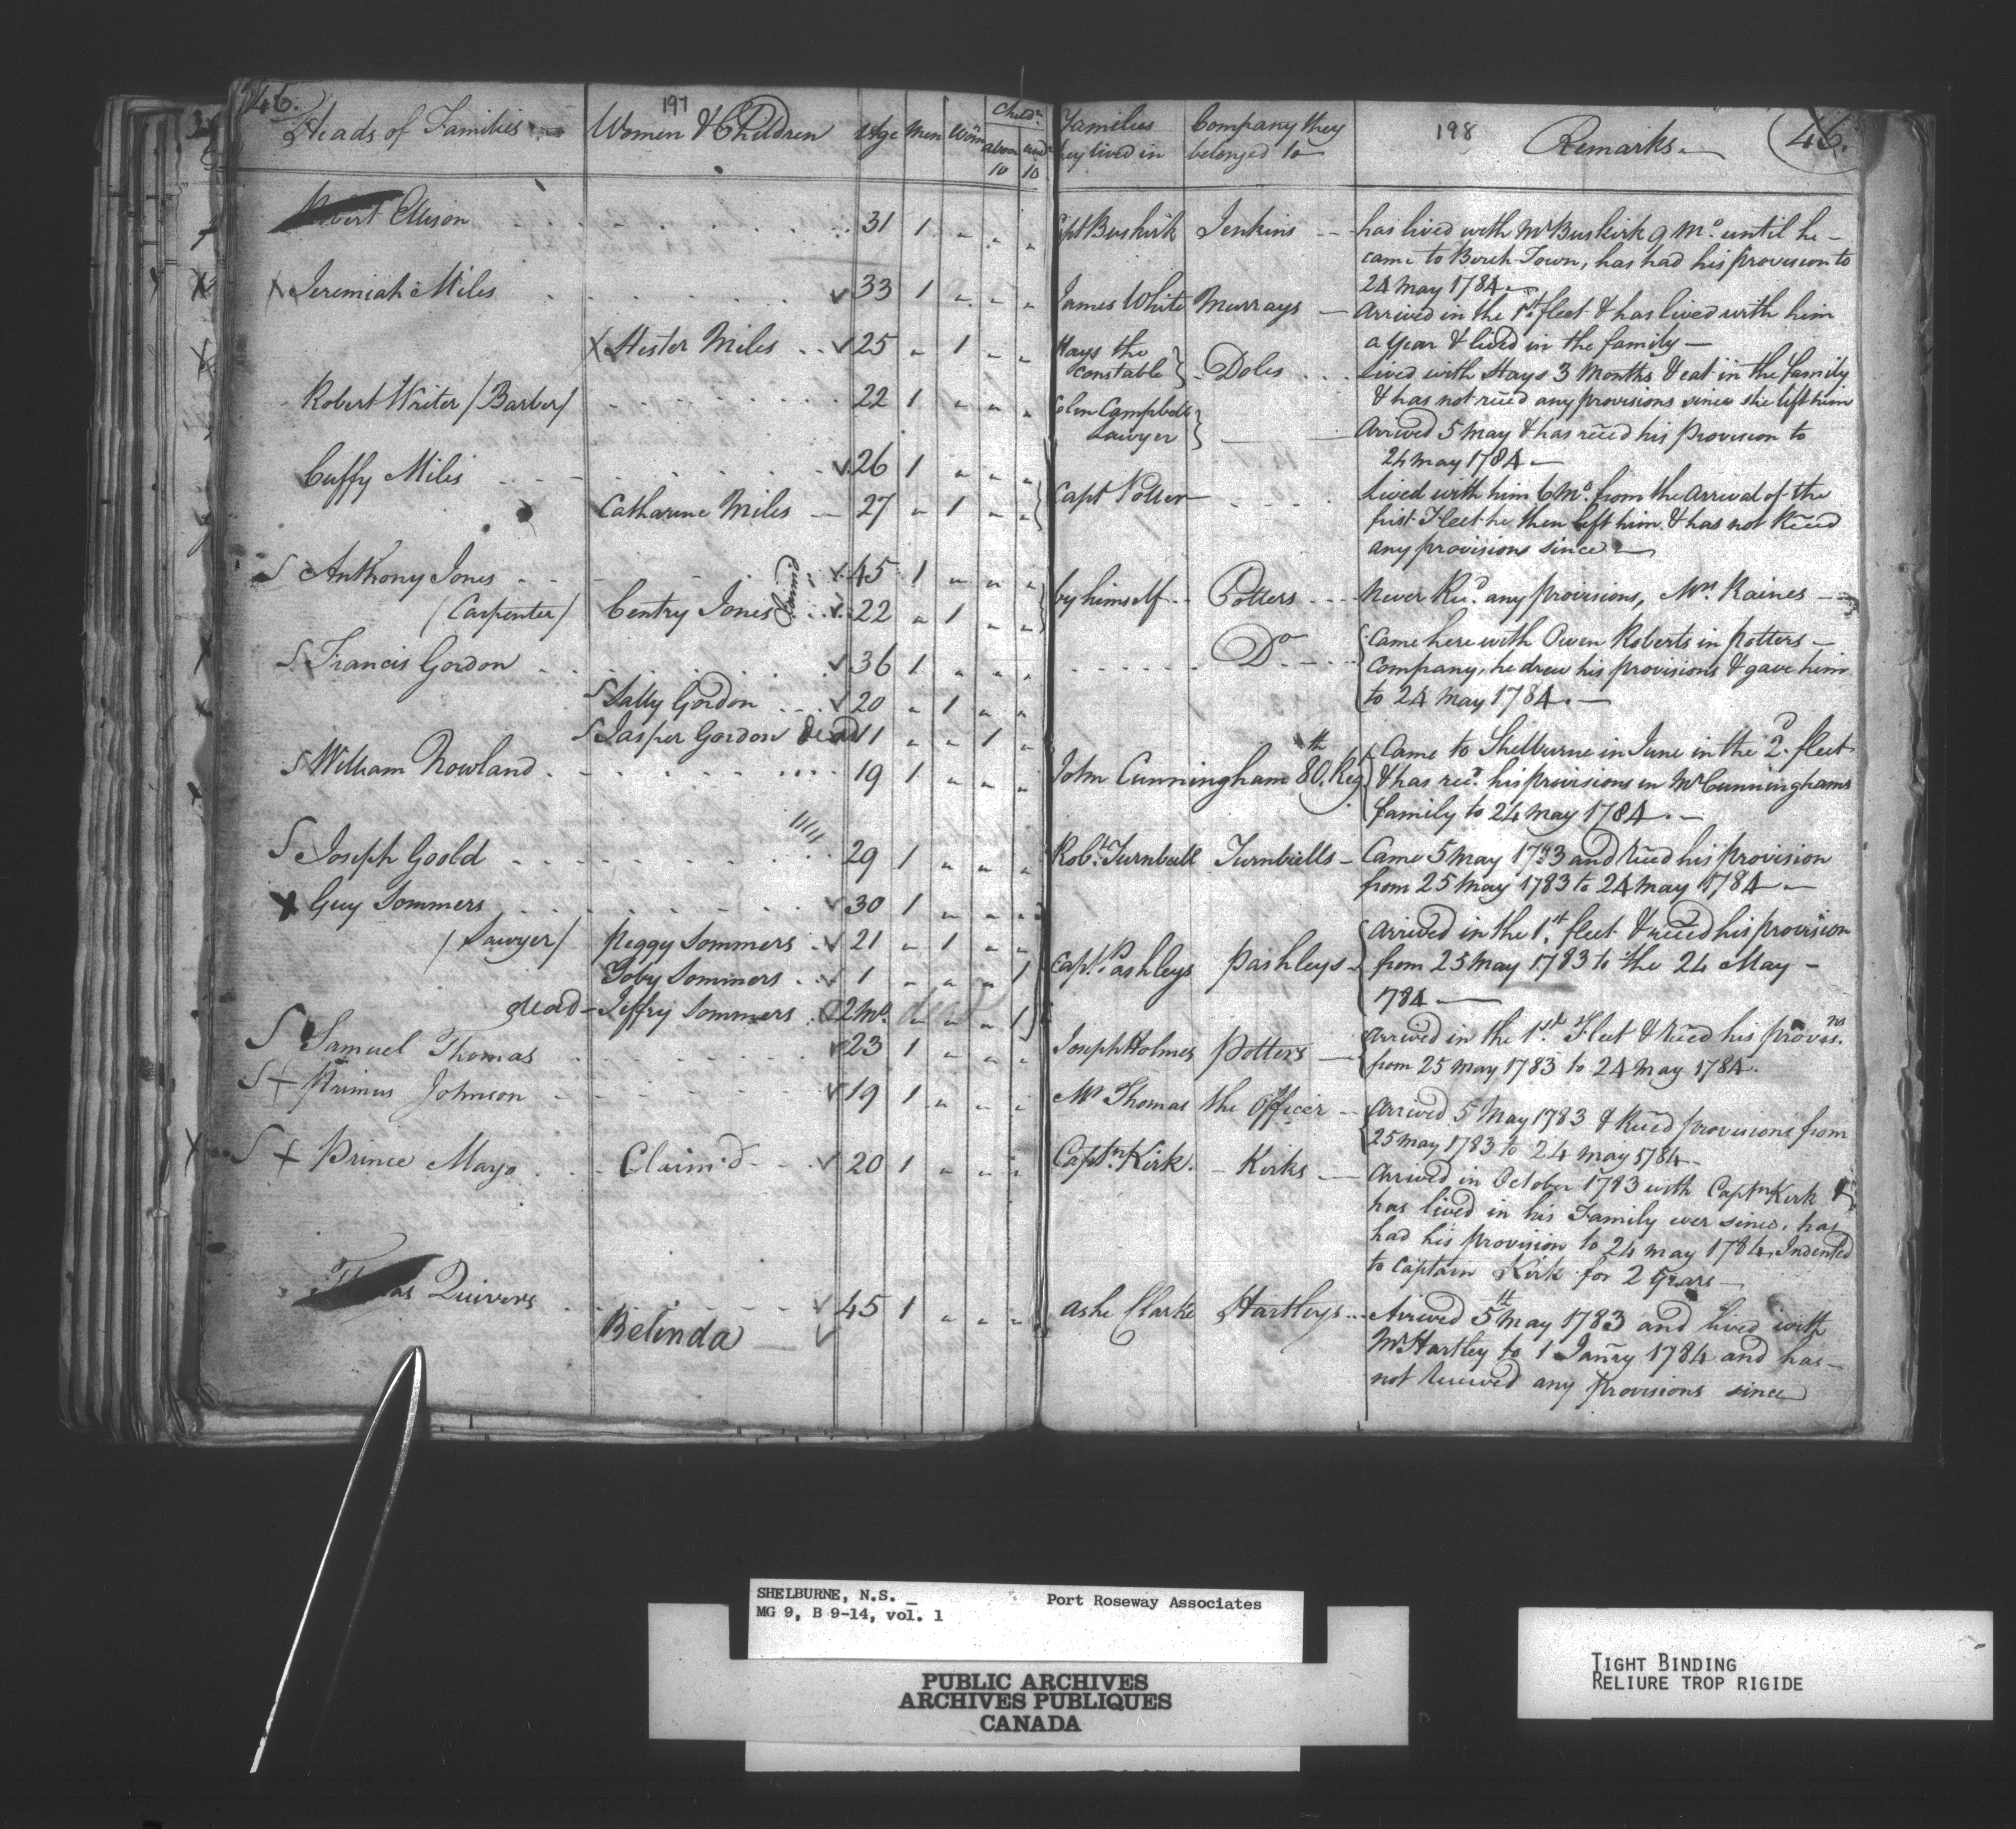 46.
197
Heads of Families
Women & Children
Age
Men
Wom
Childn
above
10
und
10
Robert Ellison 31 1
X Jeremiah Miles 33 1
X Hester Miles 25 1
Robert Writer / Barber / 22 1
Cuffy Miles 26 1
Catharine Miles 27 1
S Anthony Jones 45 1
/ Carpenter / Centry Jones Claimd 22 1
S Francis Gordon 36 1
S Sally Gordon 20 1
S Jasper Gordon dead 11 1
S William Rowland 19 1
S Joseph Goold 29 1
X Guy Sommers 30 1
/ Sawyer / Peggy Sommers 21 1
Toby Sommers 1 1
dead Jeffry Sommers 2 Mo. dead 1
S Samuel Thomas 23 1
S + Primus Johnson 19 1
S + Prince Mayo Claim'd 20 1
Thomas Quivers 45 1
Belinda
Families
they lived in
Company they
belonged to
198
Remarks
46.
Capt Buskirk Jenkins has lived with Mr Buskirk 9 Mo. until he
came to Birch Town, has had his provision to
24 May 1784
James White Murrays Arrived in the 1st fleet & has lived with him
a year & lived in the family
Hays the
Constable } Doles lived with Hays 3 Months & eat in the family
& has not recd any provisions since she left him
Colin Campbell
Lawyer } Arrived 5 May & has recd his Provision to
24 May 1784
Capt Potter Lived with him 6 Mo. from the Arrival of the
first Fleet he then left him & has not Recd
any provisions since
by himself Potters Never Recd. any Provisions, Mrs. Raines
Do Came here with Owen Roberts in Potters
Company, he drew his provisions & gave him
to 24 May 1784.
John Cunningham 80th. Reg Came to Shelburne in June in the 2d. fleet
& has recd. his provisions in Mr Cunninghams
family to 24 May 1784.
Robt. Turnbull Turnbulls Came 5 May 1783 and Recd his provision
from 25 May 1783 to 24 May 1784
Capt. Pashleys Pashleys Arrived in the 1st. fleet & recd his provision
from 25 May 1783 to the 24 May
1784
Joseph Holmes Potters Arrived in the 1st. Fleet & Recd his provisns.
from 25 May 1783 to 24 May 1784.
Mr Thomas the Officer Arrived 5 May 1783 & Recd provisions from
25 May 1783 to 24 May 1784
Captn. Kirk. Kirks Arrived in October 1783 with Captn Kirk &
has lived in his Family ever since, has
had his provision to 24 May 1784, Indented
to Captain Kirk for 2 Years
Ashe Clarke Hartleys Arived 5th May 1783 and lived with
Mr Hartley to 1 Janry 1784 and has
not Received any Provisions since
SHELBURNE, N.S. Port Roseway Associates
MG 9, B 9-14, vol. 1
PUBLIC ARCHIVES
ARCHIVES PUBLIQUES
CANADA
TIGHT BINDING
RELIURE TROP RIGIDE